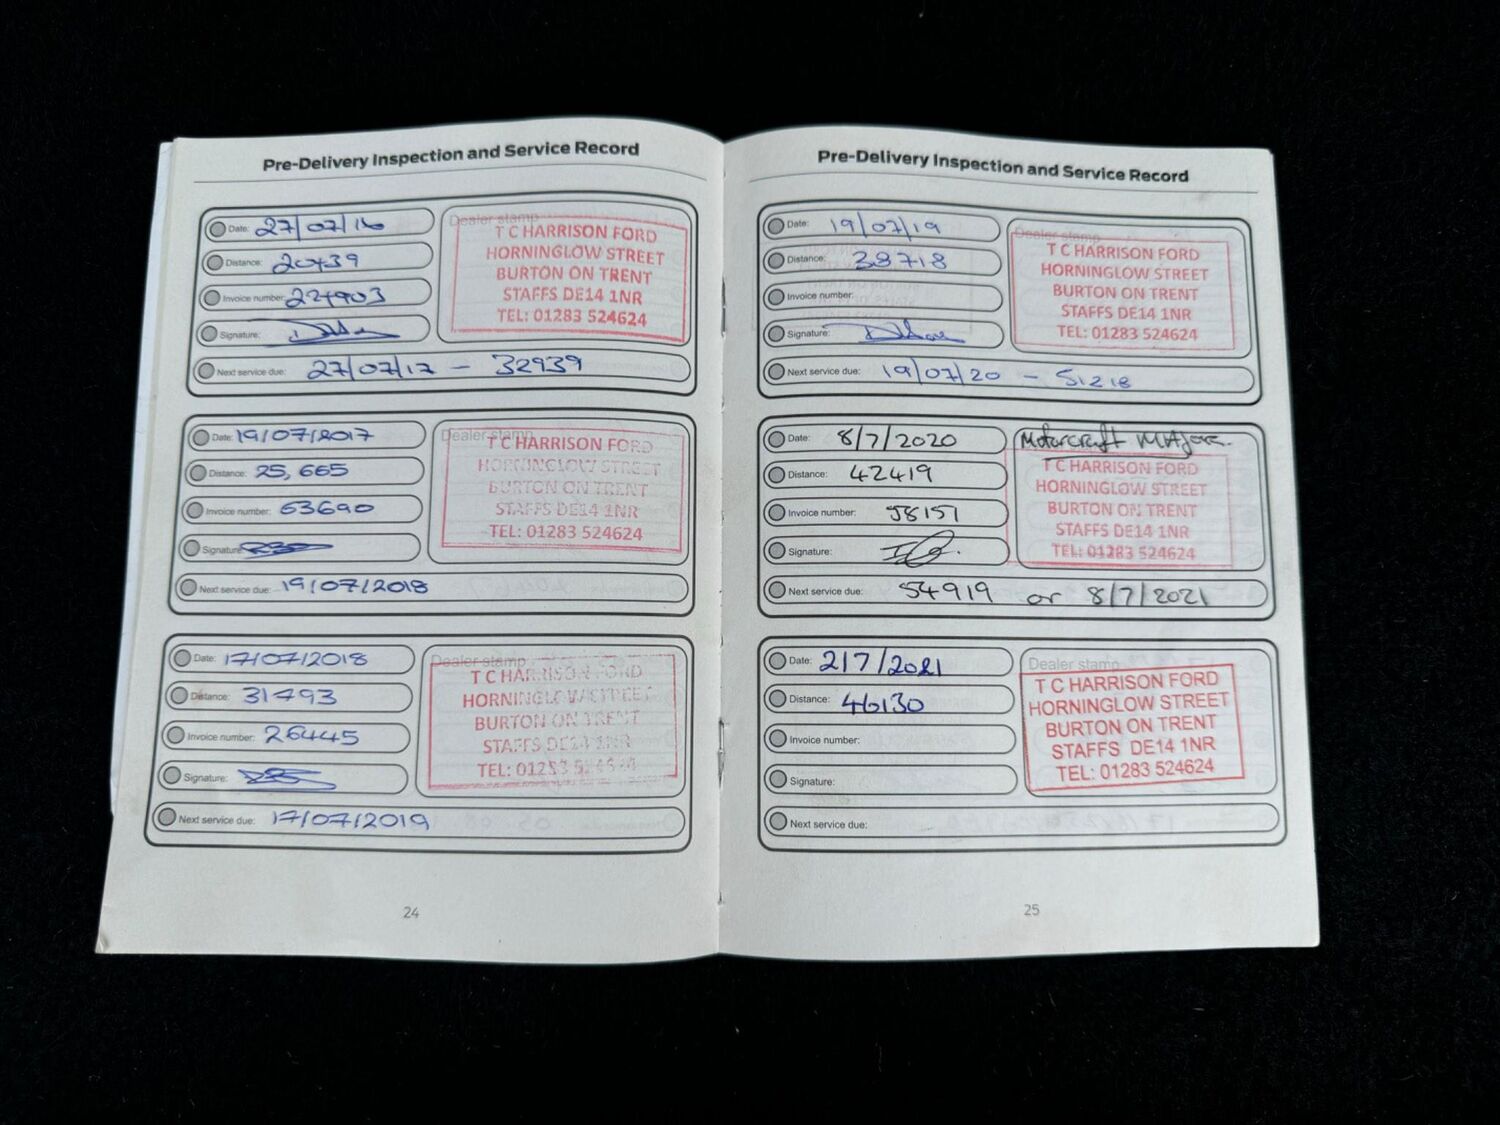 Pre-Delivery Inspection and Service Record
Date: 27/07/16
Dealer stamp
Distance: 20439
Invoice number: 224903
Signature:
T C HARRISON FORD
HORNINGLOW STREET
BURTON ON TRENT
STAFFS DE14 1NR
TEL: 01283 524624
Next service due: 27/07/17 - 32939
Date: 19/07/2017
Dealer stamp
Distance: 25,665
Invoice number: 63690
Signature:
T C HARRISON FORD
HORNINGLOW STREET
BURTON ON TRENT
STAFFS DE14 1NR
TEL: 01283 524624
Next service due: 19/07/2018
Date: 17/07/2018
Dealer stamp
Distance: 31493
Invoice number: 26445
Signature:
T C HARRISON FORD
HORNINGLOW STREET
BURTON ON TRENT
STAFFS DE14 1NR
TEL: 01283 524624
Next service due: 17/07/2019
24
Pre-Delivery Inspection and Service Record
Date: 19/07/19
Dealer stamp
Distance: 38718
Invoice number:
Signature:
T C HARRISON FORD
HORNINGLOW STREET
BURTON ON TRENT
STAFFS DE14 1NR
TEL: 01283 524624
Next service due: 19/07/20 - 51218
Date: 8/7/2020
Motorcraft Major.
Distance: 42419
Invoice number: 58157
Signature:
T C HARRISON FORD
HORNINGLOW STREET
BURTON ON TRENT
STAFFS DE14 1NR
TEL: 01283 524624
Next service due: 54919 or 8/7/2021
Date: 2/7/2021
Dealer stamp
Distance: 46130
Invoice number:
Signature:
T C HARRISON FORD
HORNINGLOW STREET
BURTON ON TRENT
STAFFS DE14 1NR
TEL: 01283 524624
Next service due:
25